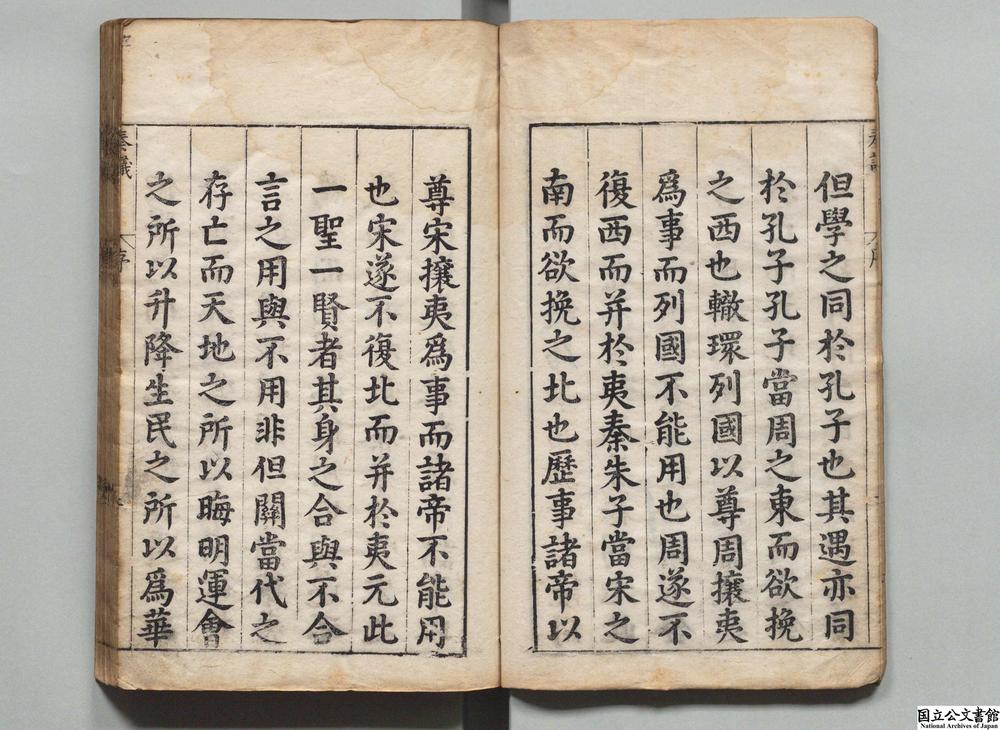 但學之同於孔子也其遇亦同
於孔子孔子當周之東而欲挽
之西也轍環列國以尊周攘夷
爲事而列國不能用也周遂不
復西而并於夷秦朱子當宋之
南而欲挽之北也歷事諸帝以
尊宋攘夷爲事而諸帝不能用
也宋遂不復北而并於夷元此
一聖一賢者其身之合與不合
言之用與不用非但關當代之
存亡而天地之所以晦明運會
之所以升降生民之所以爲華
奏議
序
国立公文書館
National Archives of Japan